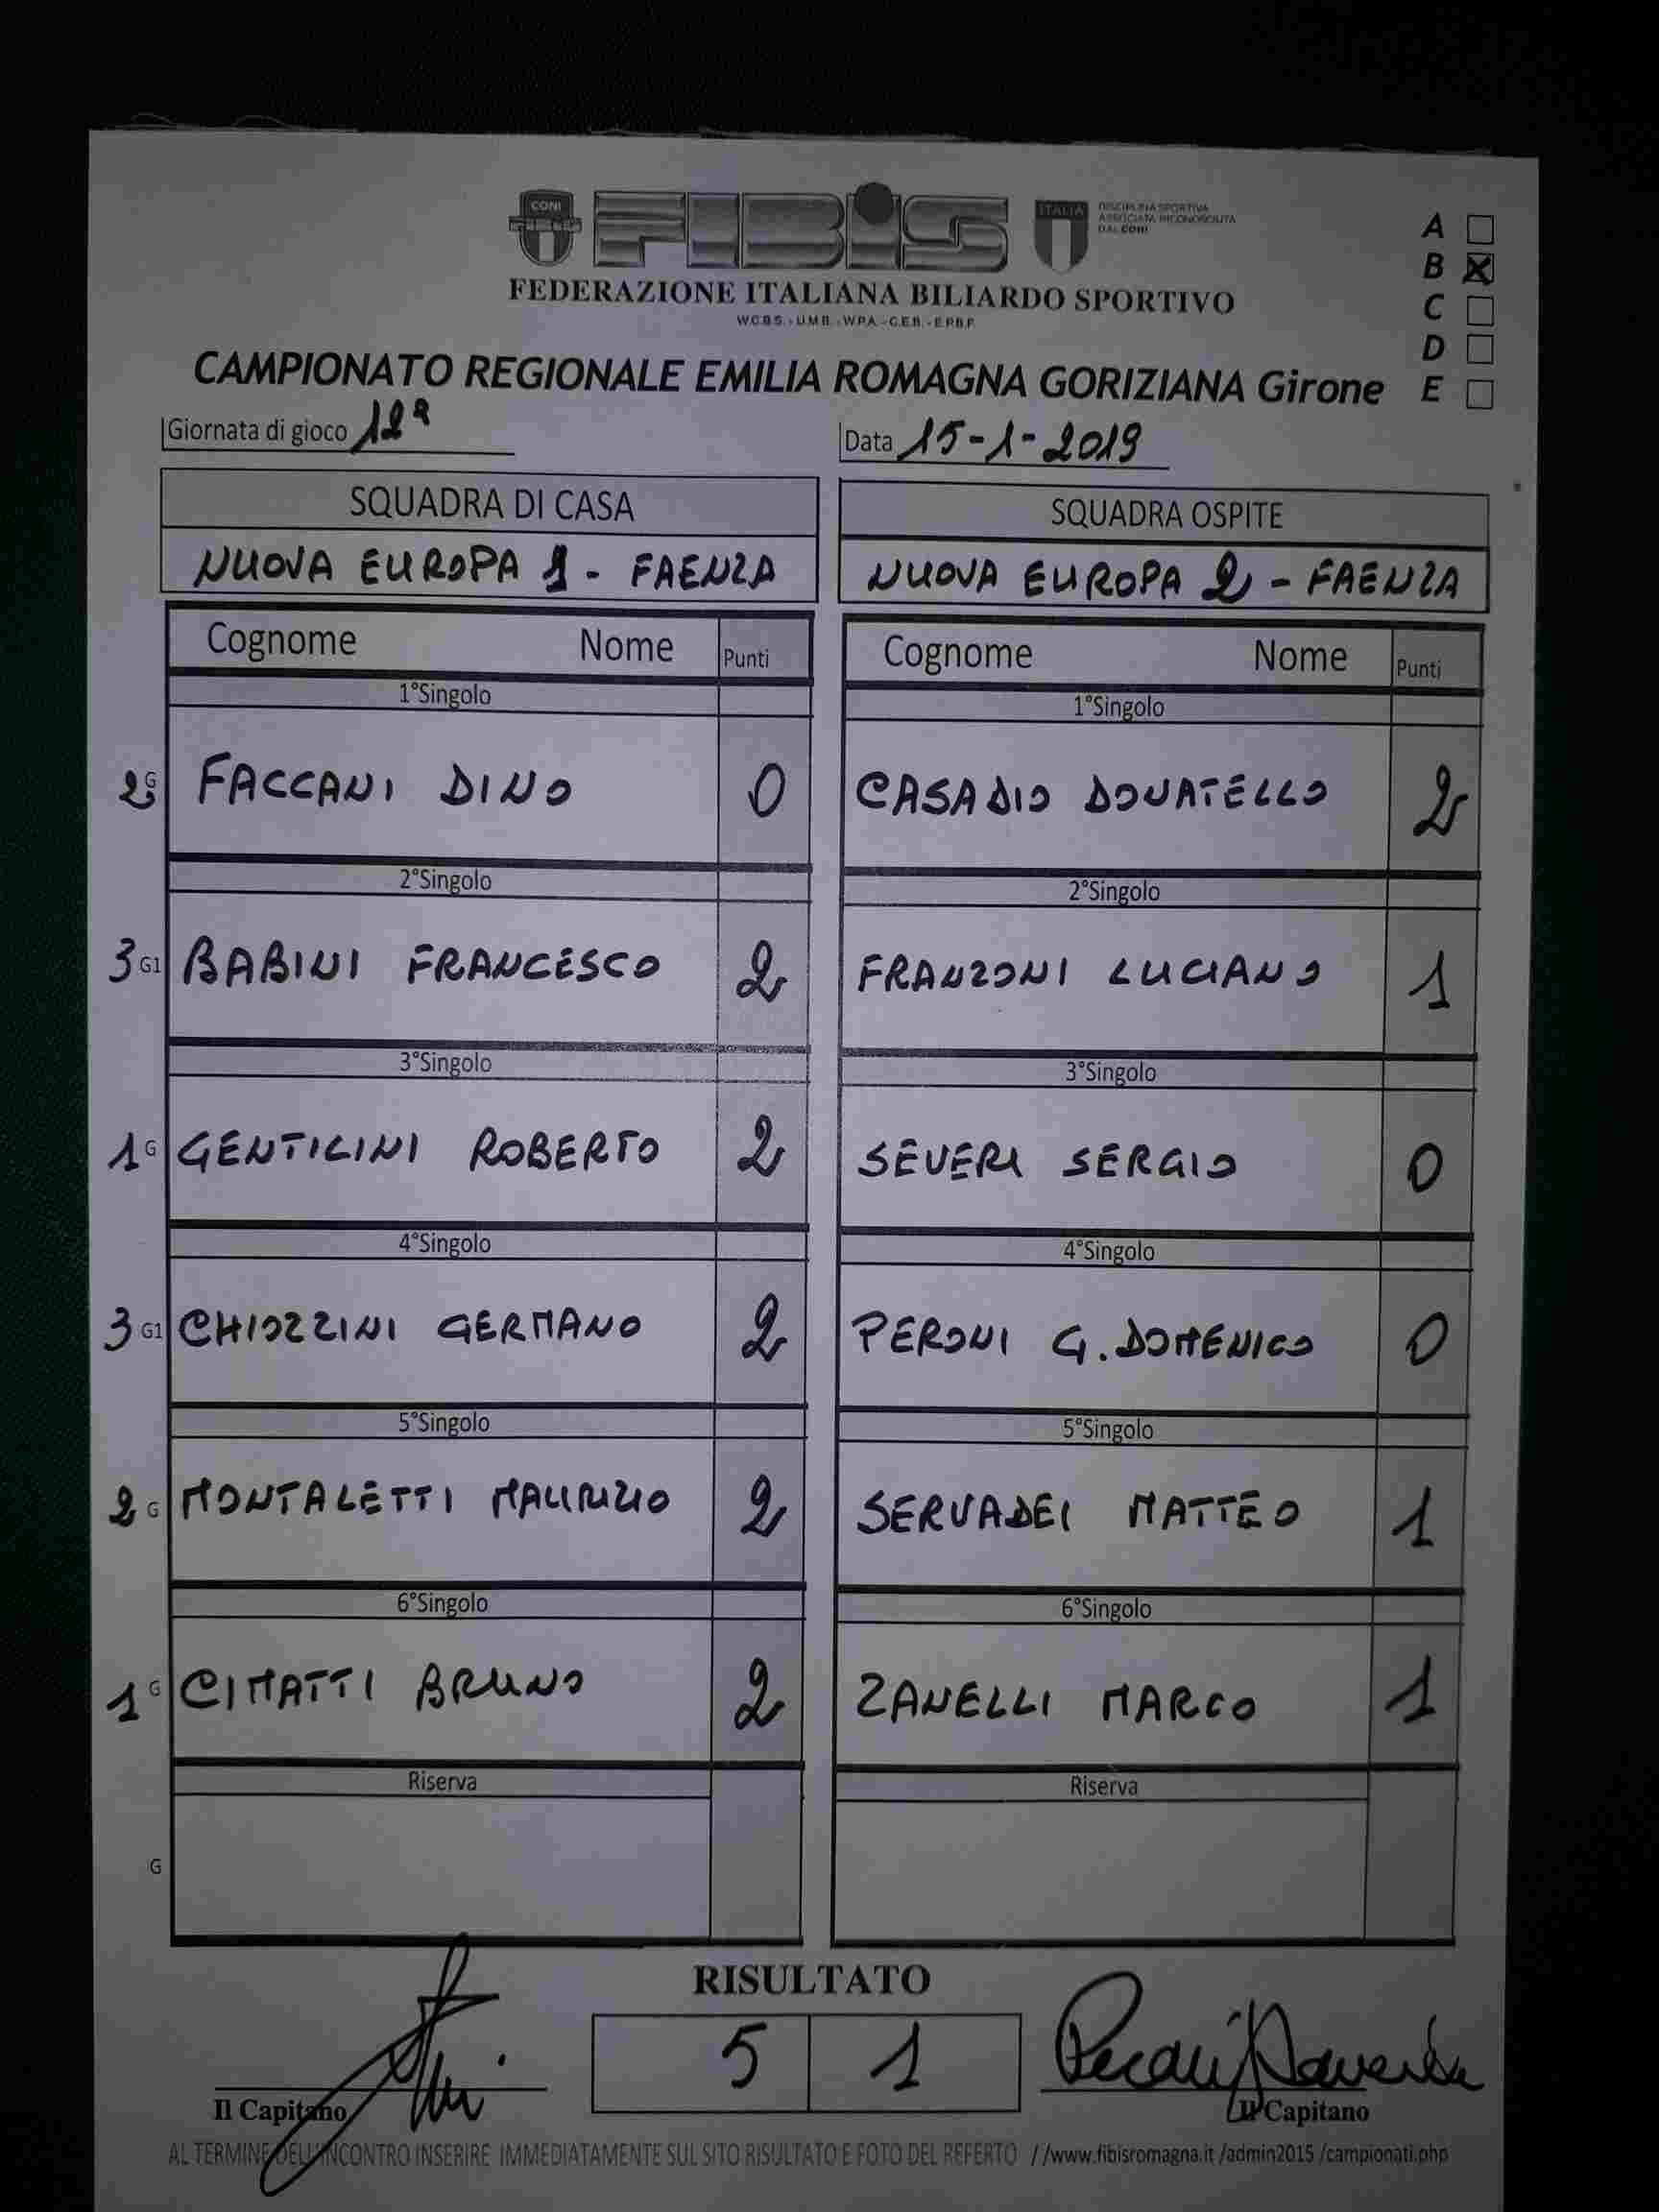 CONI
FIBIS
ITALIA
DISCIPLINA SPORTIVA
ASSOCIATA RICONOSCIUTA
DAL CONI
FEDERAZIONE ITALIANA BILIARDO SPORTIVO
W.C.B.S. - U.M.B. - W.P.A. - C.E.B. - E.P.B.F.
A
B X
C
D
CAMPIONATO REGIONALE EMILIA ROMAGNA GORIZIANA Girone E
Giornata di gioco 12ª Data 15-1-2019
SQUADRA DI CASA SQUADRA OSPITE
NUOVA EUROPA 1 - FAENZA NUOVA EUROPA 2 - FAENZA
Cognome Nome Punti Cognome Nome Punti
1°Singolo 1°Singolo
2 G FACCANI DINO 0 CASADIO DONATELLO 2
2°Singolo 2°Singolo
3 G1 BABINI FRANCESCO 2 FRANZONI LUCIANO 1
3°Singolo 3°Singolo
1 G GENTILINI ROBERTO 2 SEVERI SERGIO 0
4°Singolo 4°Singolo
3 G1 CHIOZZINI GERMANO 2 PERONI G. DOMENICO 0
5°Singolo 5°Singolo
2 G MONTALETTI MAURIZIO 2 SERVADEI MATTEO 1
6°Singolo 6°Singolo
1 G CIMATTI BRUNO 2 ZANELLI MARCO 1
Riserva Riserva
G
RISULTATO
5 1
Il Capitano Il Capitano
AL TERMINE DELL'INCONTRO INSERIRE IMMEDIATAMENTE SUL SITO RISULTATO E FOTO DEL REFERTO //www.fibisromagna.it /admin2015 /campionati.php